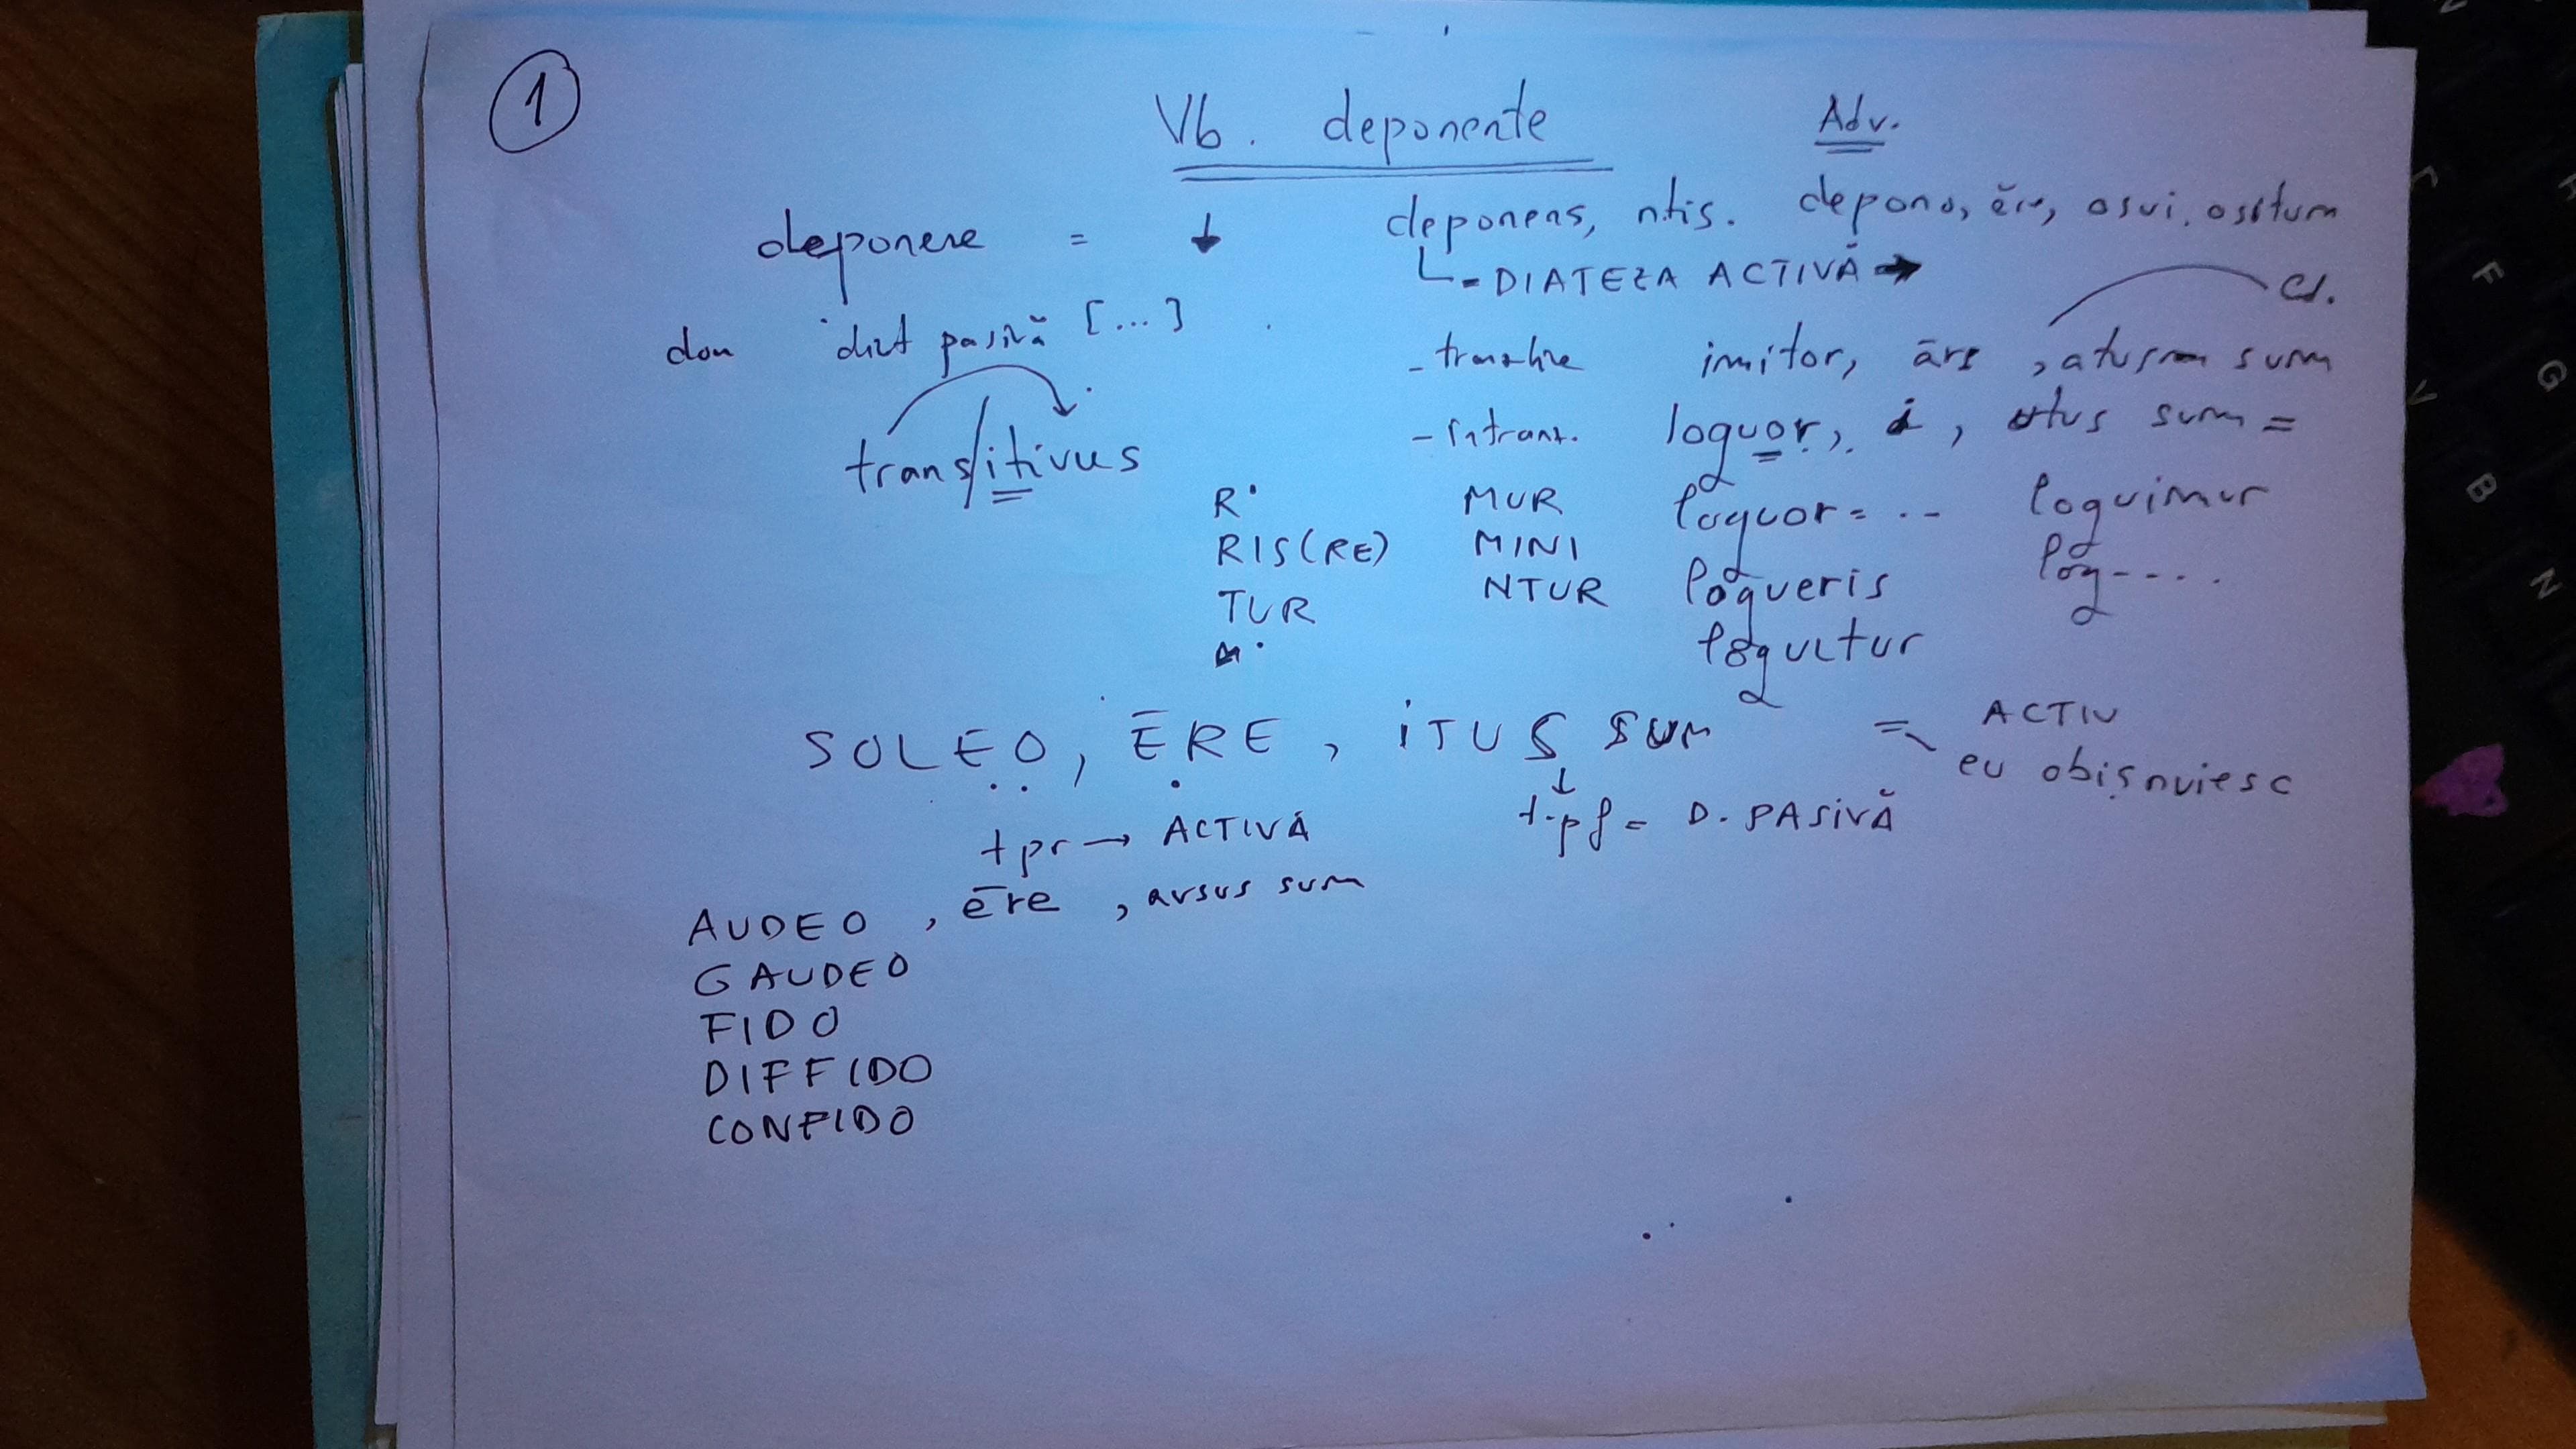 1
Vb. deponente Adv.
deponere = ↓ deponens, ntis. depono, ĕre, osui, ositum
= DIATEZA ACTIVĂ →
pasivă [...]
imitor, āri, atus sum
trans/itivus
loquor, i, utus sum =
R MUR loquor = .. loquimur
RIS(RE) MINI loqueris loq----.
TUR NTUR loquitur
SOLEO, ĒRE, ITUS SUM = ACTIV
eu obișnuiesc
t pr → ACTIVĂ t.pf = D. PASIVĂ
AUDEO, ēre, ausus sum
GAUDEO
FIDO
DIFFIDO
CONFIDO